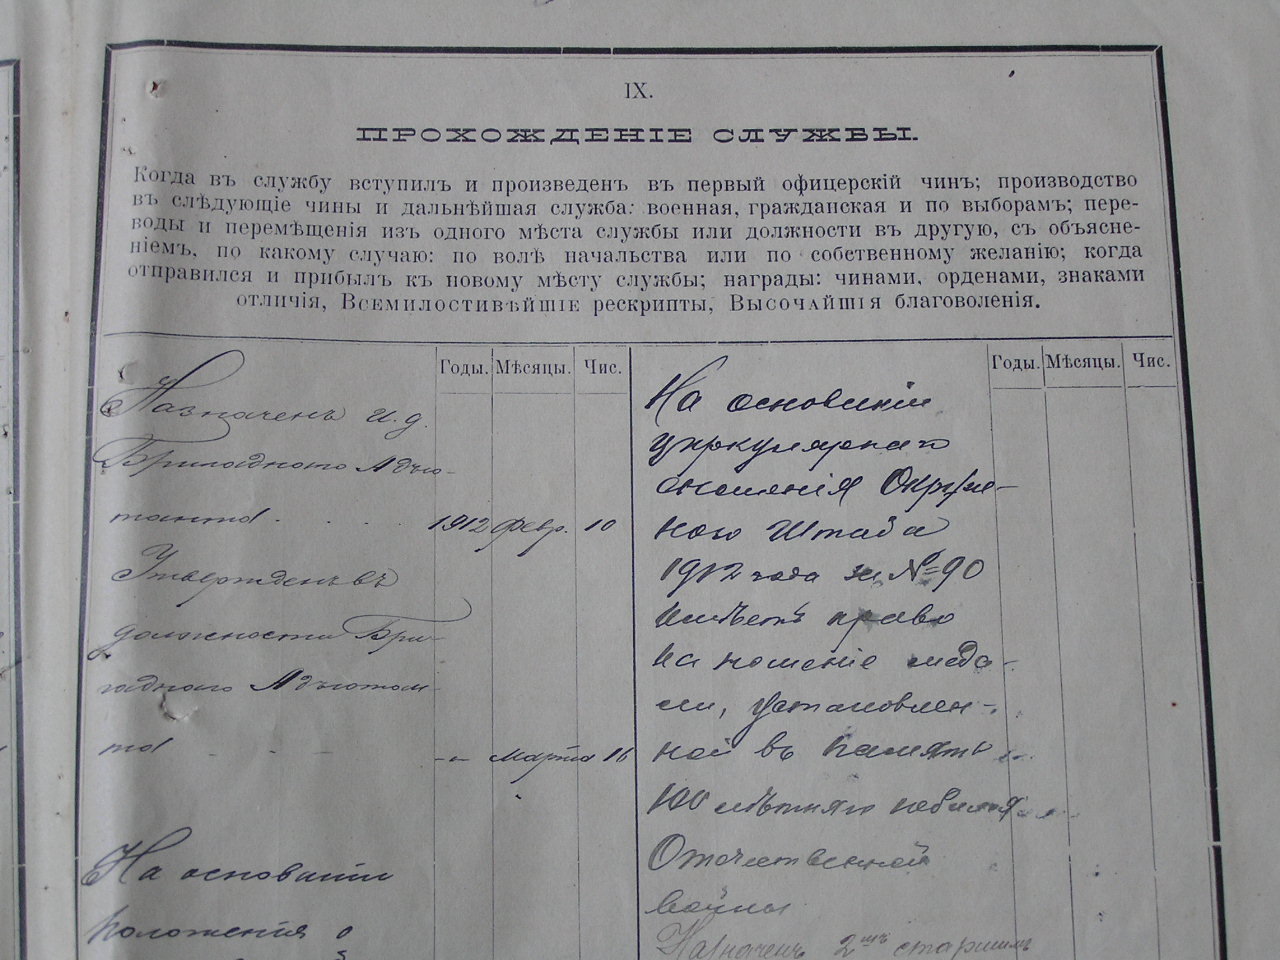 IX.
ПРОХОЖДЕНІЕ СЛУЖБЫ.
Когда въ службу вступилъ и произведенъ въ первый офицерскій чинъ; производство
въ слѣдующіе чины и дальнѣйшая служба: военная, гражданская и по выборамъ; пере-
воды и перемѣщенія изъ одного мѣста службы или должности въ другую, съ объясне-
ніемъ, по какому случаю: по волѣ начальства или по собственному желанію; когда
отправился и прибылъ къ новому мѣсту службы; награды: чинами, орденами, знаками
отличія, Всемилостивѣйшіе рескрипты, Высочайшія благоволенія.
Годы. Мѣсяцы. Чис.
Назначенъ и.д.
Бригаднаго Адъю-
танта . . . . 1912 февр. 10
Утвержденъ въ
должности Бри-
гаднаго Адъютан-
та - - - -"- марта 16
На основаніи
положенія о
Годы. Мѣсяцы. Чис.
На основаніи
циркулярнаго
сношенія Окруж-
ного Штаба
1912 года за № 90
имѣетъ право
на ношеніе меда-
ли, установлен-
ной въ память
100 лѣтняго юбилея
Отечественной
войны
Назначенъ 2мъ старшимъ